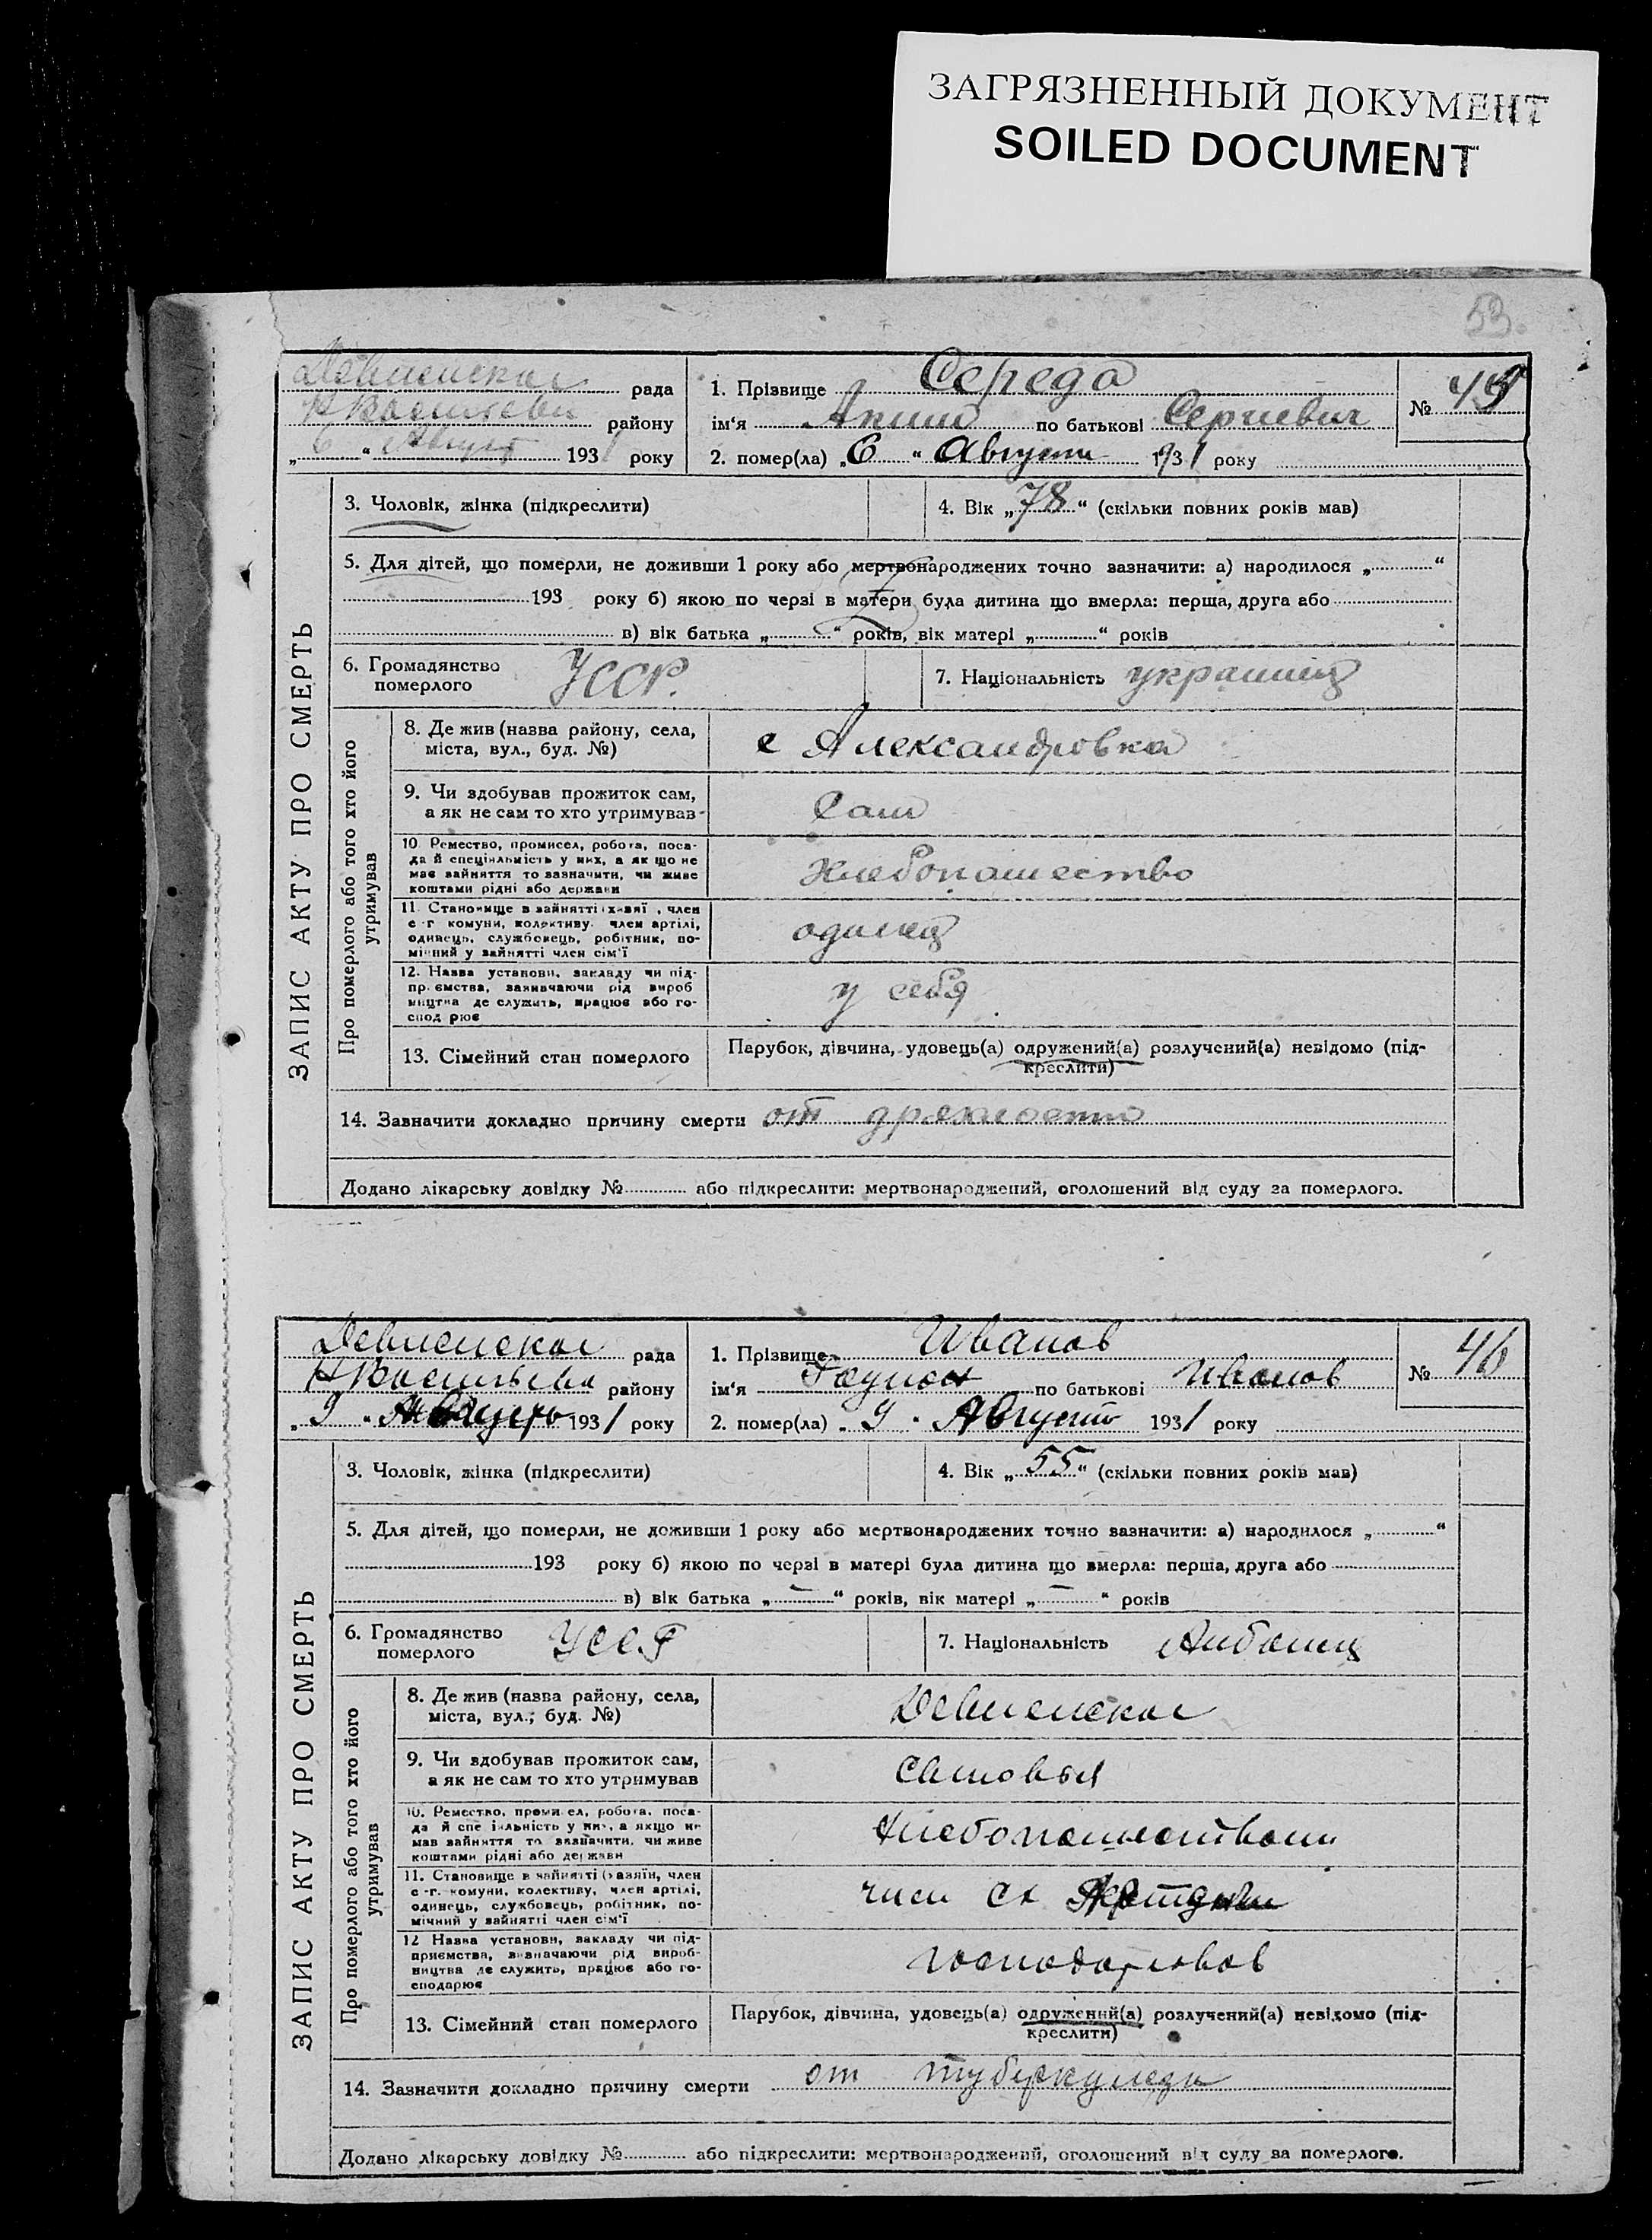 ЗАГРЯЗНЕННЫЙ ДОКУМЕНТ
SOILED DOCUMENT
53.
Девненская рада
района району
„6“ Август 1931 року
1. Прізвище Середа
ім‘я Аким по батькові Сергиевич
2. помер(ла) „6“ Августа 1931 року
№ 45
ЗАПИС АКТУ ПРО СМЕРТЬ
3. Чоловік, жінка (підкреслити)
4. Вік „78“ (скільки повних років мав)
5. Для дітей, що померли, не доживши 1 року або мертвонароджених точно зазначити: а) народилося „ “
193 року б) якою по черзі в матери була дитина що вмерла: перша, друга або
в) вік батька „ “ років, вік матері „ “ років
6. Громадянство
померлого УССР.
7. Національність украинец
Про померлого або того хто його
утримував
8. Де жив (назва району, села,
міста, вул., буд. №)
с Александровка
9. Чи здобував прожиток сам,
а як не сам то хто утримував
Сам
10. Ремество, промисел, робота, поса-
да й спеціяльність у них, а як що не
має зайняття то зазначити, чи живе
коштами рідні або держави
Хлебопашество
11. Становище в зайнятті (хазяї , член
с-г. комуни, колективу, член артілі,
одинець, службовець, робітник, по-
мічний у зайнятті член сім‘ї
одинец
12. Назва установи, закладу чи під-
пр.ємства, зазначаючи рід вироб
ництва де служить, працює або го-
спод рює
у себя
13. Сімейний стан померлого
Парубок, дівчина, удовець(а) одружений(а) розлучений(а) невідомо (під-
креслити)
14. Зазначити докладно причину смерти от дряхлости
Додано лікарську довідку № або підкреслити: мертвонароджений, оголошений від суду за померлого.
Девненская рада
району
„9“ Августа 1931 року
1. Прізвище Иванов
ім‘я по батькові Иванов
2. помер(ла) „9“ Августа 1931 року
№ 46
ЗАПИС АКТУ ПРО СМЕРТЬ
3. Чоловік, жінка (підкреслити)
4. Вік „55“ (скільки повних років мав)
5. Для дітей, що померли, не доживши 1 року або мертвонароджених точно зазначити: а) народилося „ “
193 року б) якою по черзі в матері була дитина що вмерла: перша, друга або
в) вік батька „—“ років, вік матері „—“ років
6. Громадянство
померлого УССР
7. Національність Албанец
Про померлого або того хто його
утримував
8. Де жив (назва району, села,
міста, вул.; буд. №)
Девненская
9. Чи здобував прожиток сам,
а як не сам то хто утримував
10. Ремество, промисел, робота, поса-
да й спеціяльність у них, а якщо не
мав зайняття то зазначити, чи живе
коштами рідні або держави
11. Становище в зайнятті (хазяїн, член
с-г. комуни, колективу, член артілі,
одинець, службовець, робітник, по-
мічний у зайнятті член сім‘ї
член
12 Назва установи, закладу чи під-
приємства, визначаючи рід вироб-
ництва де служить, працює або го-
сподарює
господарював
13. Сімейний стан померлого
Парубок, дівчина, удовець(а) одружений(а) розлучений(а) невідомо (під-
креслити)
14. Зазначитя докладно причину смерти от туберкулеза
Додано лікарську довідку № або підкреслити: мертвонароджений, оголошений від суду за померлого.